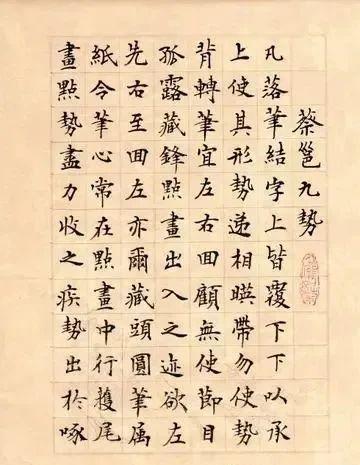 蔡邕九勢
凡落筆結字上皆覆下下以承
上使其形勢递相暎帶勿使勢
背轉筆宜左右回顧無使節目
孤露藏鋒點畫出入之迹欲左
先右至回左亦爾藏頭圓筆属
紙令筆心常在點畫中行護尾
畫點勢盡力收之疾勢出於啄